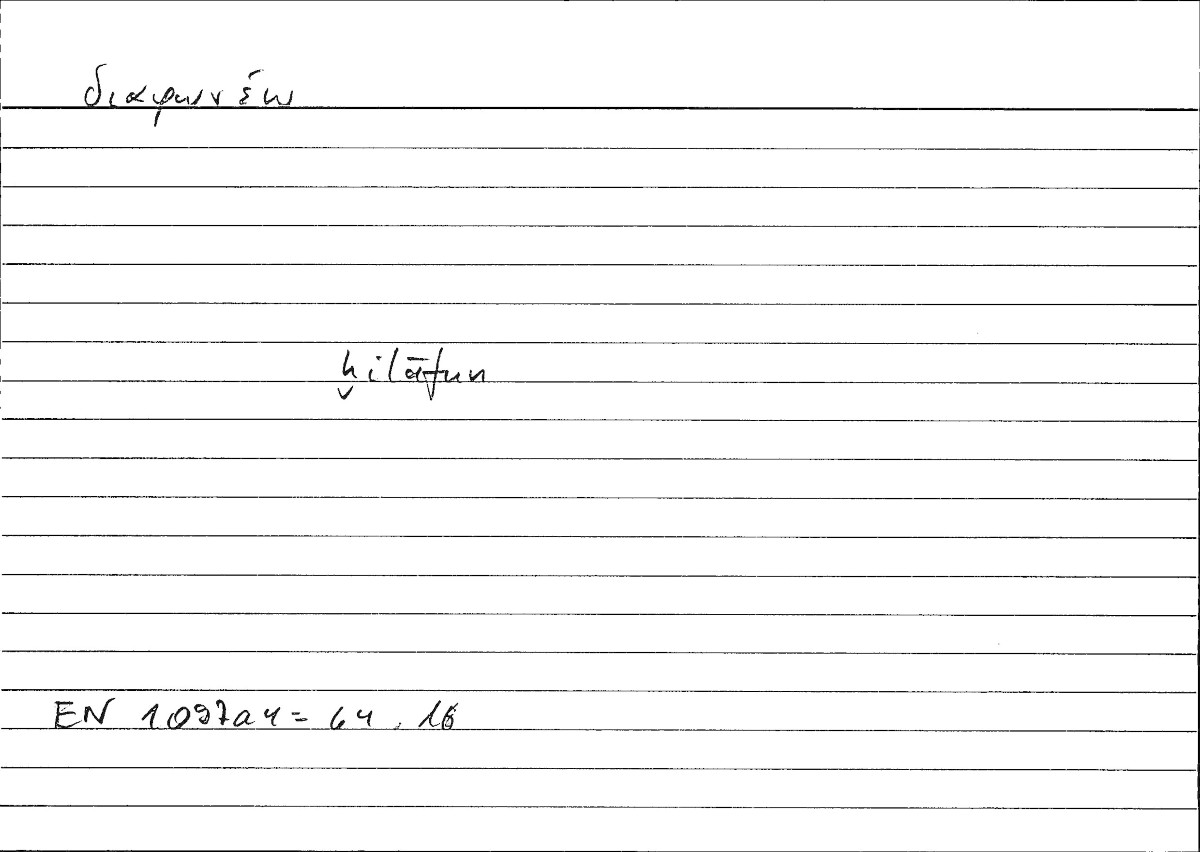 διαφωνέω
ḫilāfun
EN 1097a4 = 64 . 16